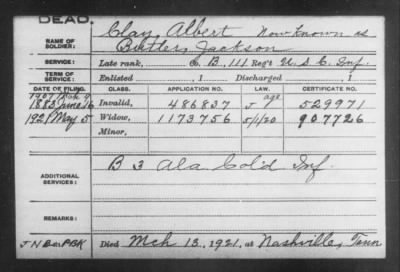 DEAD.
NAME OF SOLDIER: Clay, Albert Now known as
Butler, Jackson
SERVICE: Late rank, Co B, 111 Reg't U.S.C. Inf.
TERM OF SERVICE: Enlisted , 1 Discharged , 1
DATE OF FILING. CLASS. APPLICATION NO. LAW. CERTIFICATE NO.
1907 age
1883 June 16 Invalid, 486837 529971
1921 May 5 Widow, 1173756 5/1/20 907726
Minor,
ADDITIONAL SERVICES: B 3 Ala. Col'd Inf.
REMARKS:
Died Mch 13, 1921, at Nashville, Tenn